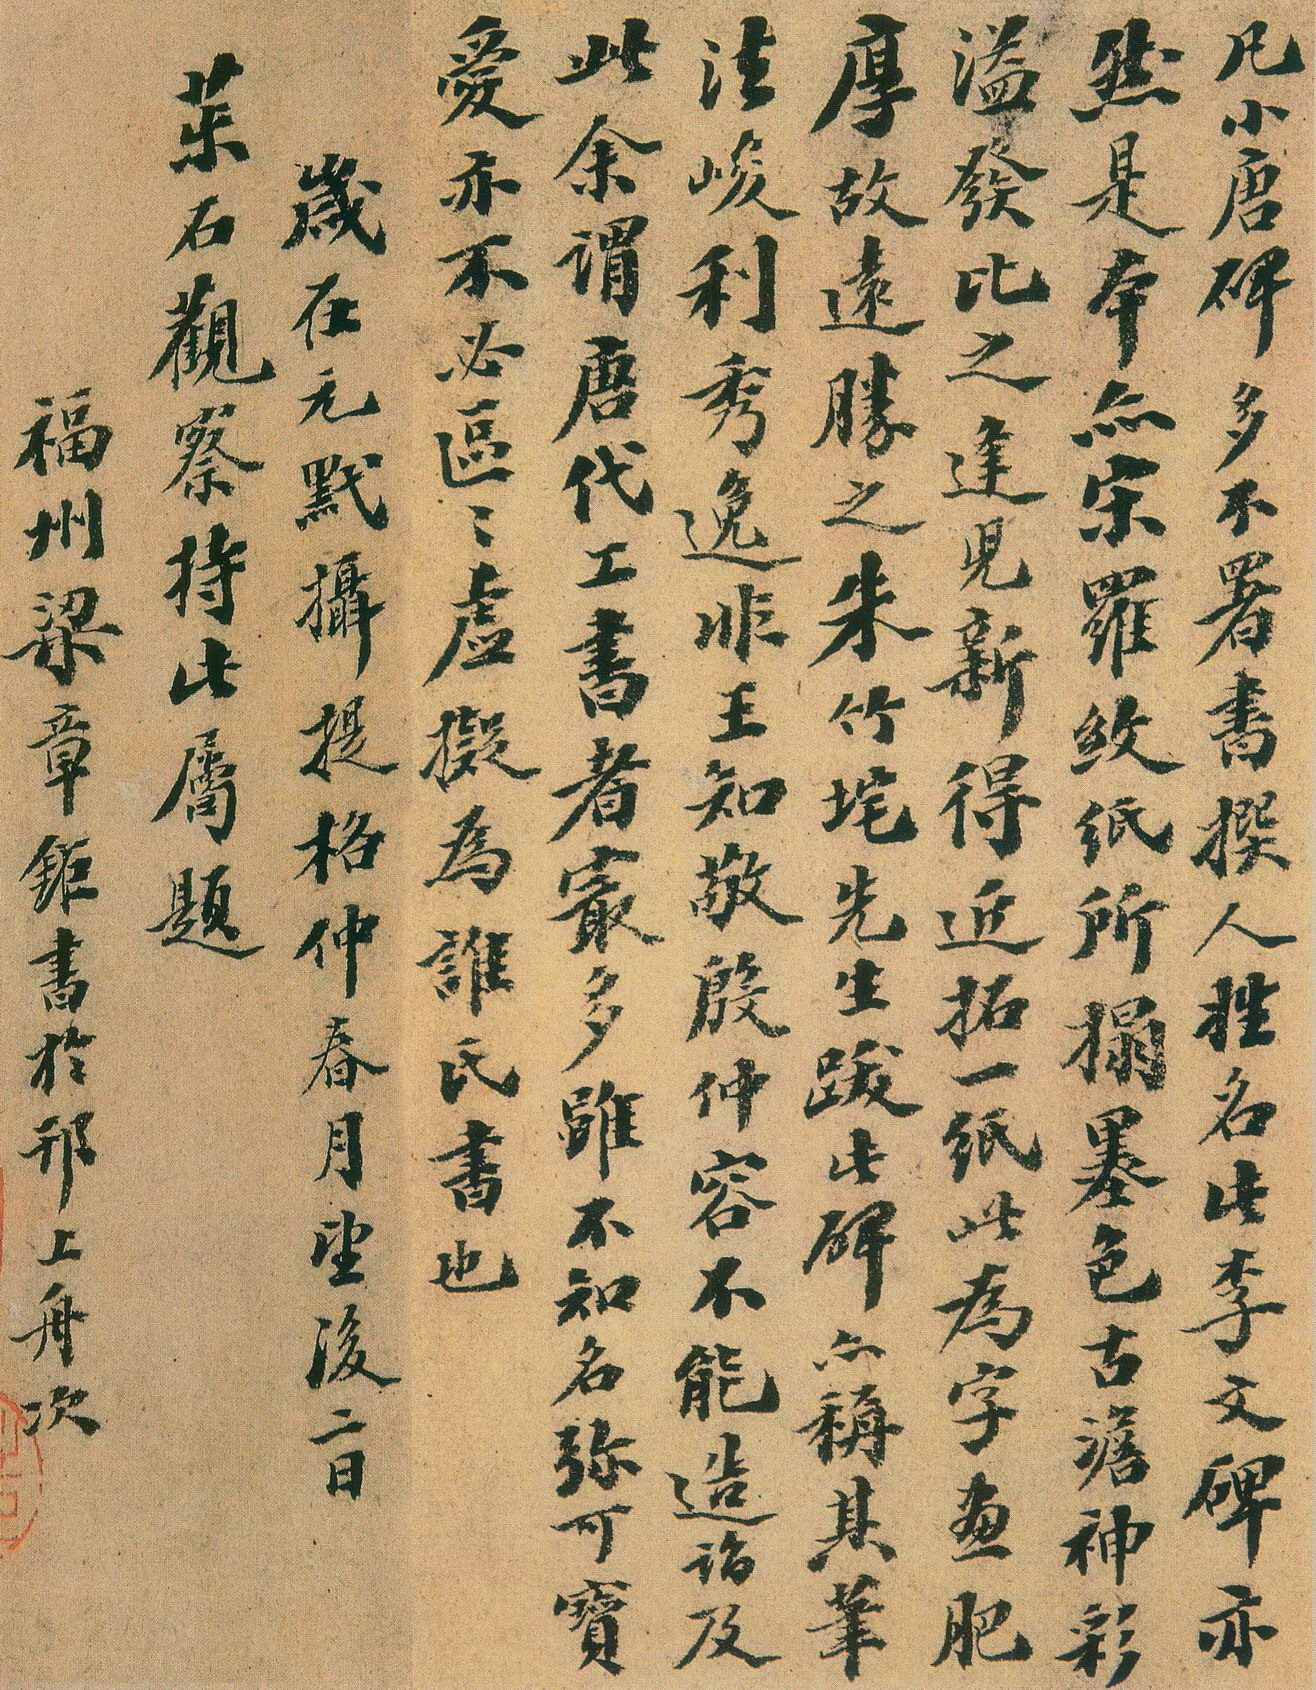 凡小唐碑多不署書撰人姓名此李文碑亦
然是本亦宋羅紋紙所搨墨色古澹神彩
溢發比之逢兒新得近拓一紙此為字畫肥
厚故遠勝之朱竹垞先生跋此碑亦稱其筆
法峻利秀逸非王知敬殷仲容不能造詣及
此余謂唐代工書者最多雖不知名弥可寶
愛亦不必區〻虛擬為誰氏書也
歲在元黓攝提格仲春月望後二日
茮石觀察持此屬題
福州梁章鉅書於邗上舟次